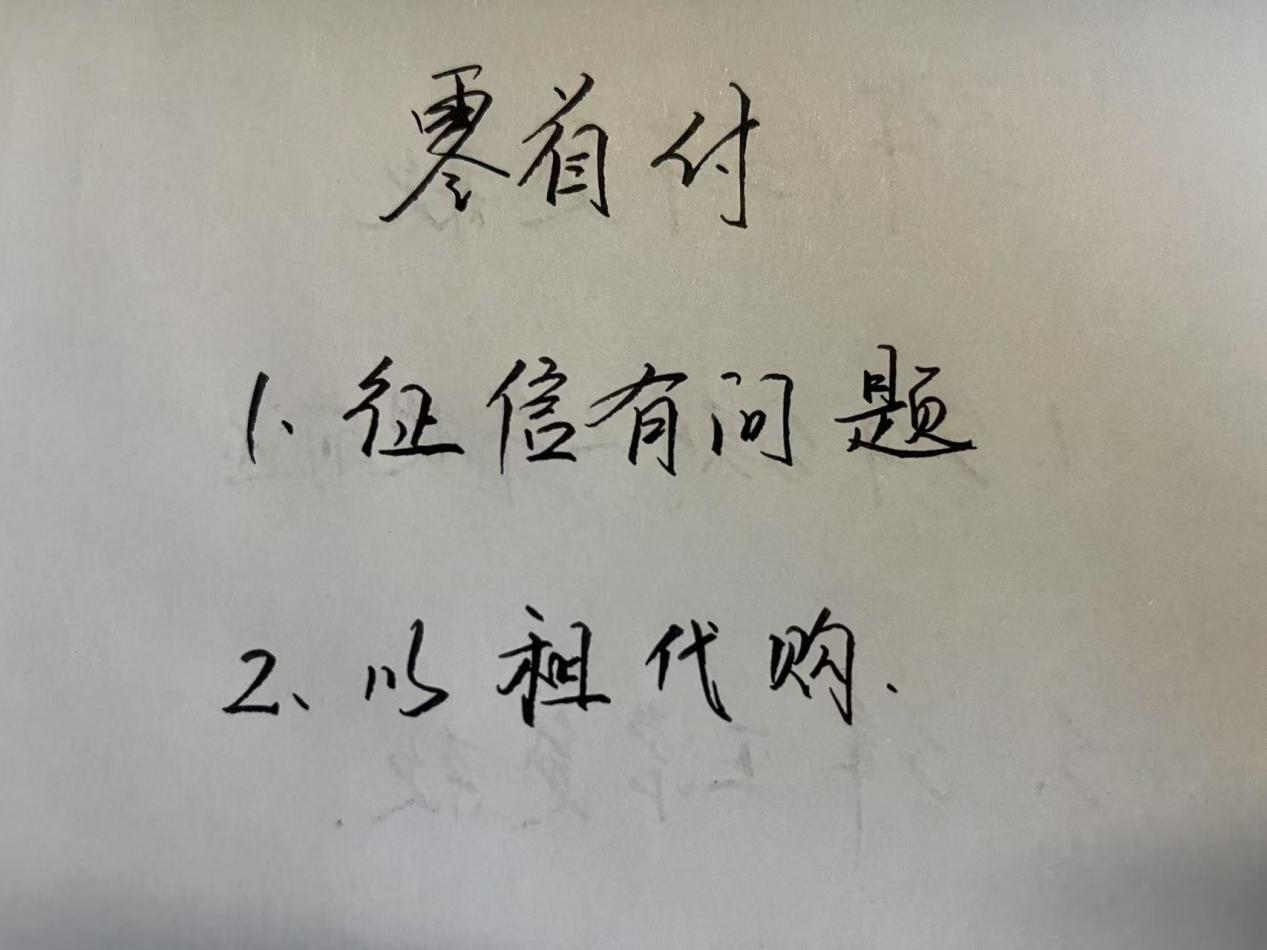 零首付
1、征信有问题
2、以租代购.